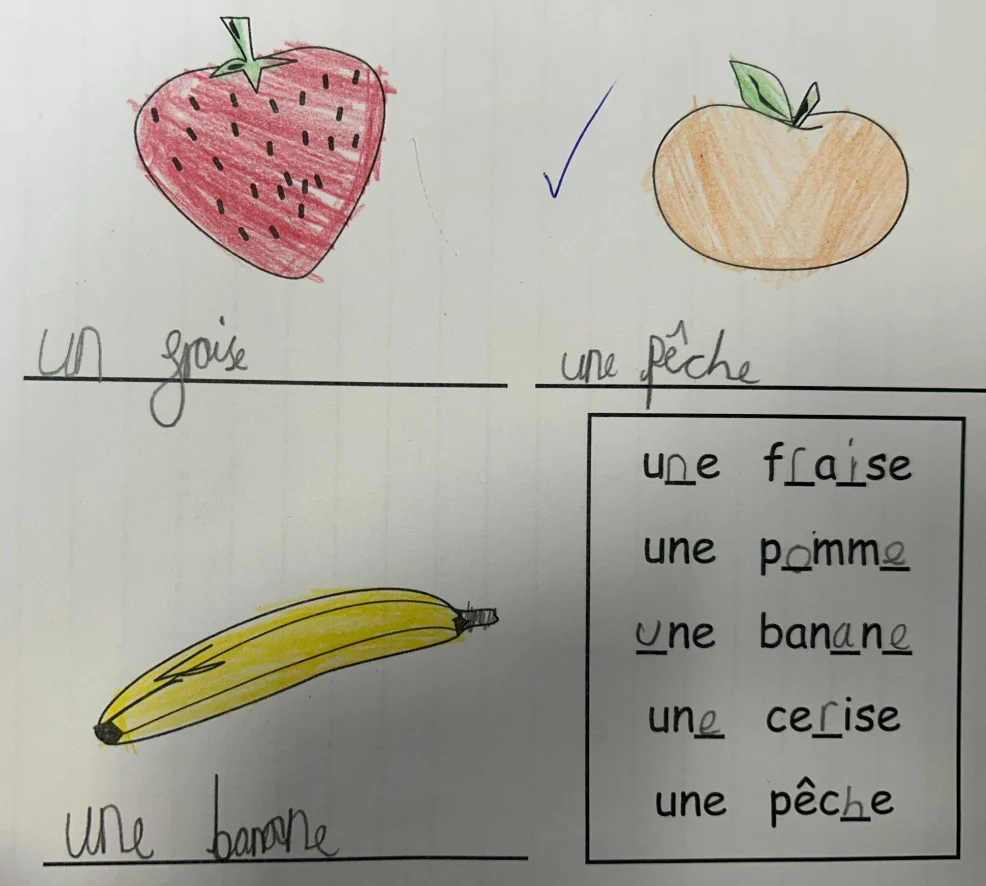 un fraise
une pêche
une fraise
une pomme
une banane
une cerise
une pêche
une banane